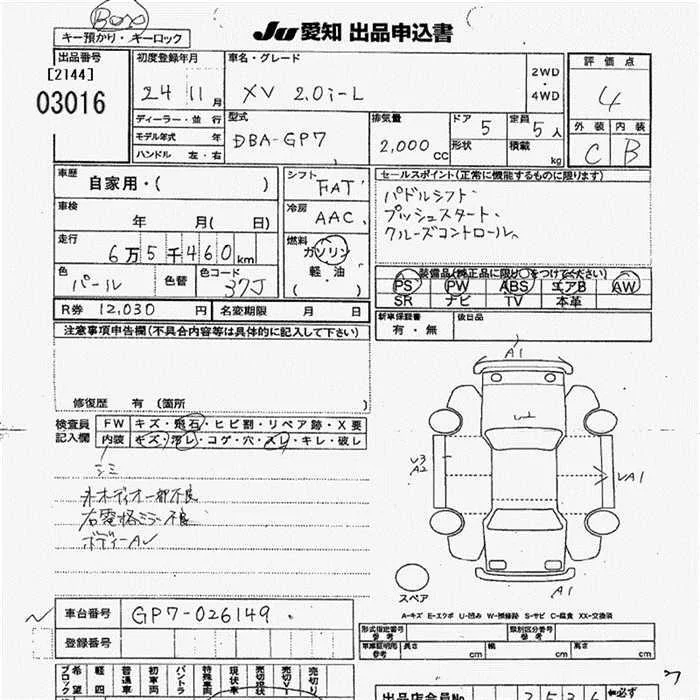 Box
キー預かり・キーロック
Ju 愛知 出品申込書
出品番号
[2144]
03016
初度登録年月
24 11月
ディーラー・並行
モデル年式 年
ハンドル 左・右
車名・グレード
XV 2.0i-L
2WD
・
4WD
型式
DBA-GP7
排気量
2,000cc
ドア 5
形状
定員 5人
積載 kg
評価点
4
外装 内装
C B
車歴
自家用・( )
車検
年 月( 日)
走行
6万5千460km
色
パール
色替
色コード
37J
シフト
FAT
冷房
AAC
燃料
ガソリン
軽・油
・( )
セールスポイント(正常に機能するものに限ります)
パドルシフト
プッシュスタート、
クルーズコントロール
装備品(純正品に限り○をつけてください)
PS PW ABS エアB AW
SR ナビ TV 本革
R券 12,030円
名変期限 月 日
新車保証書
有・無
後日品
注意事項申告欄(不具合内容等は具体的に記入して下さい)
修復歴 有(箇所 )
検査員
記入欄
FW キズ・飛石・ヒビ割・リペア跡・X要
内装 キズ・汚レ・コゲ・穴・スレ・キレ・破レ
シミ
オーディオ一部不良
右電格ミラー不良
ボディーAU
A1
U3
A2
UA1
A1
スペア
A-キズ E-エクボ U-凹み W-補修跡 S-サビ C-腐食 XX-交換済
車台番号
GP7-026149
登録番号
形式指定番号
参考
類別区分番号
参考
車庫証明用
参考
長さ cm
幅 cm
高さ cm
ブロック
希望
軽四
普通車
初車両
パントラ
特殊車両
現状車
売切現状
売切V
売切り
出品店会員No.
2536
*必ず